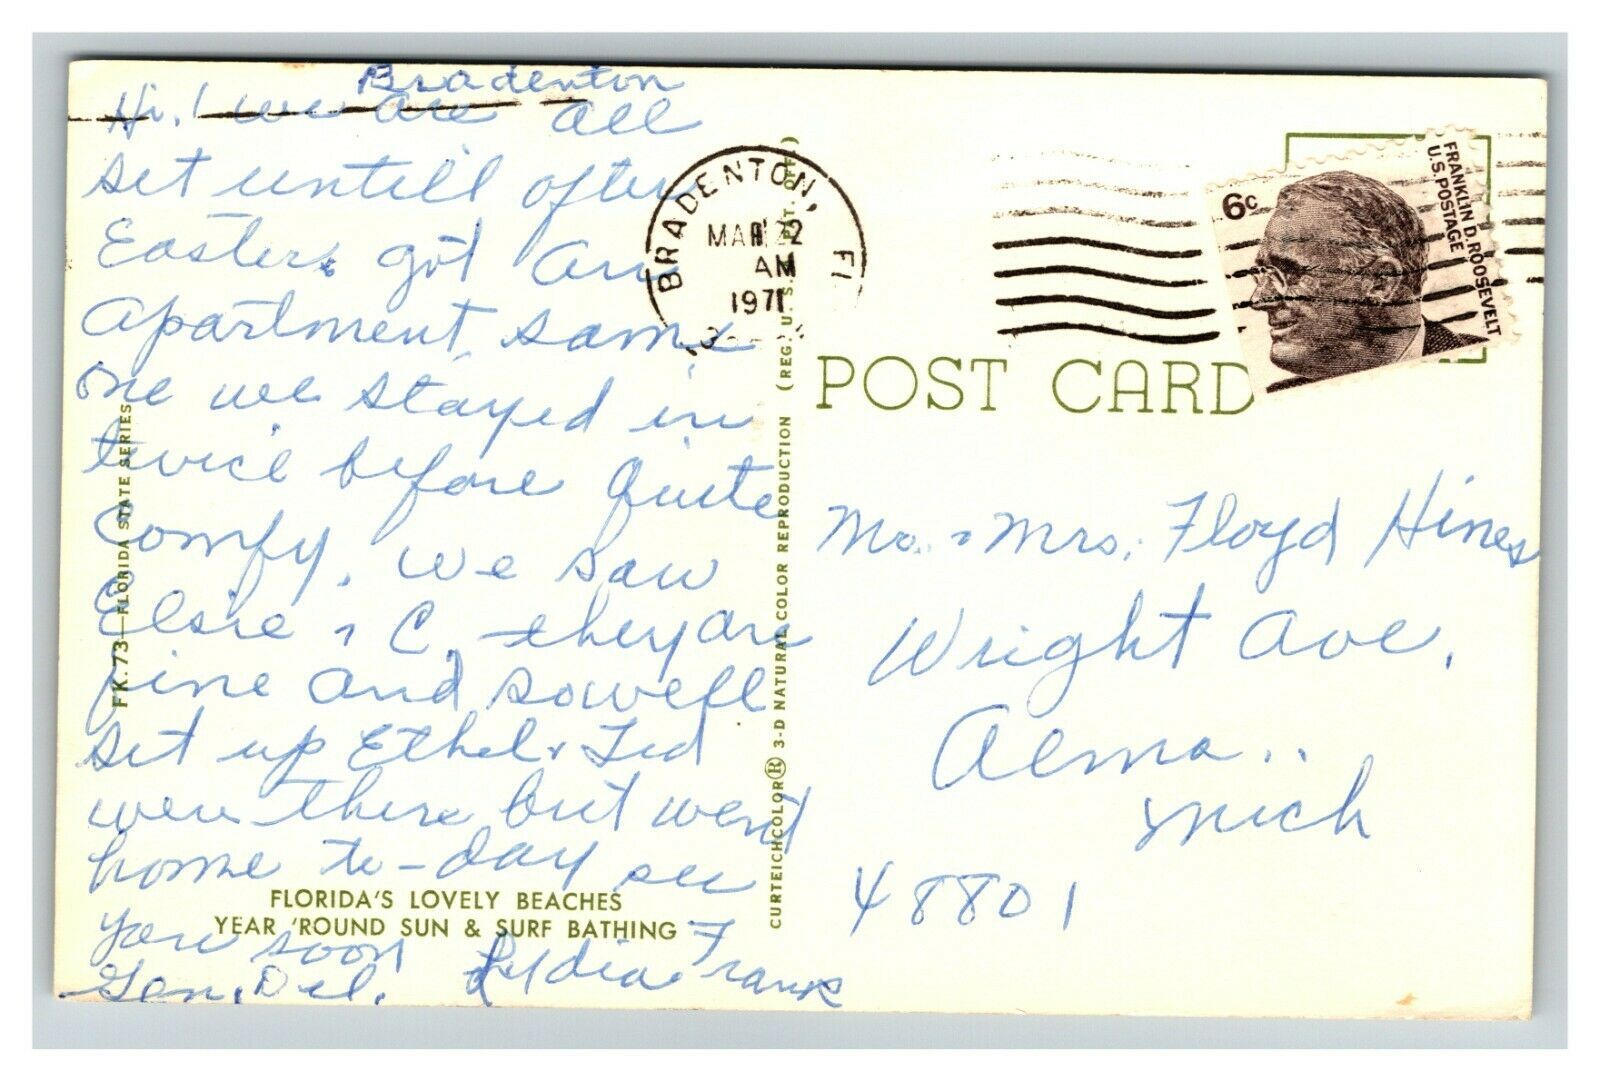 Bradenton
Hi, we are all
set untill after
Easter. got an
apartment, same
one we stayed in
twice before quite
comfy. we saw
Elsie & C, they are
fine and so well
set up Ethel & Ted
were there but went
home to-day see
you soon
Gen. Del. Lydia & Frank
FLORIDA'S LOVELY BEACHES
YEAR 'ROUND SUN & SURF BATHING
FK.73—FLORIDA STATE SERIES
CURTEICHCOLOR® 3-D NATURAL COLOR REPRODUCTION (REG. U.S. PAT. OFF.)
BRADENTON, FL
MAR 22
AM
1971
6c
FRANKLIN D. ROOSEVELT
U.S. POSTAGE
POST CARD
Mr. & Mrs. Floyd Hines
Wright Ave.
Alma..
Mich
48801